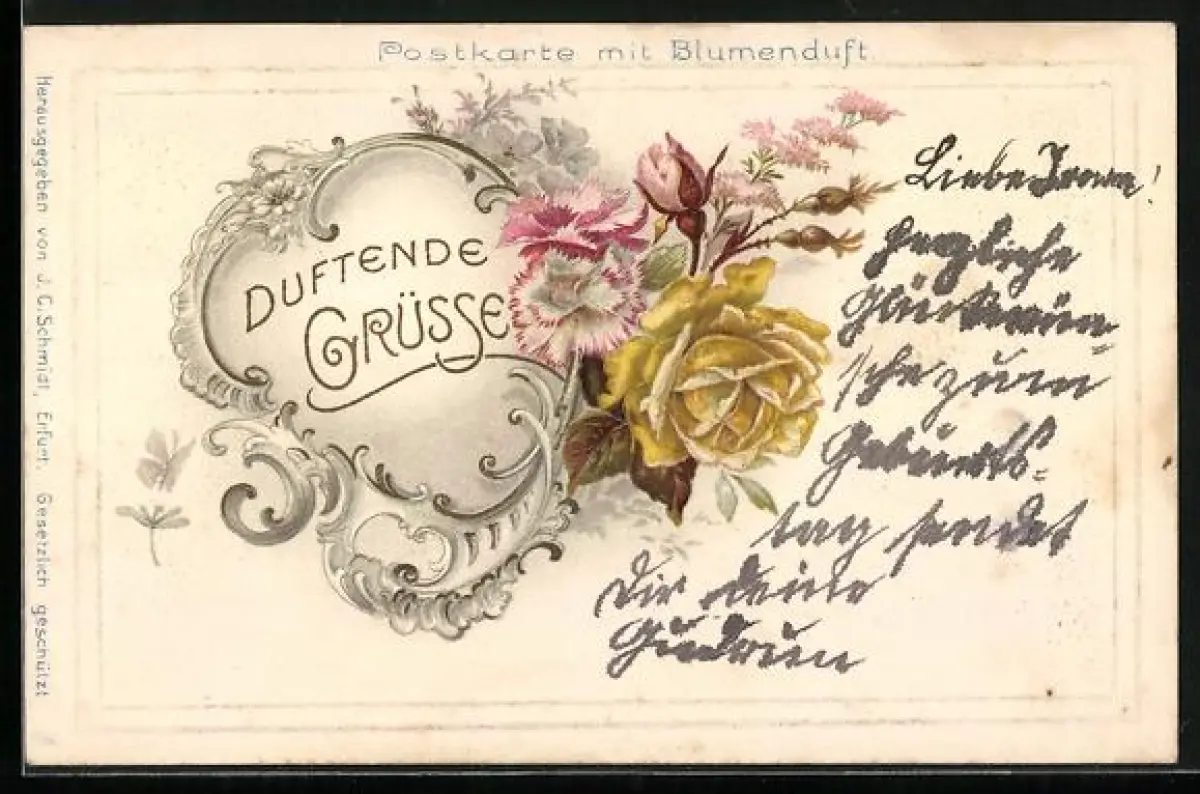 Postkarte mit Blumenduft.
Herausgegeben von J. C. Schmidt, Erfurt. Gesetzlich geschützt
DUFTENDE
GRÜSSE
Liebe
herzliche
Glückwün-
sche zum
Geburts-
tag sendet
Dir deine
Gudrun